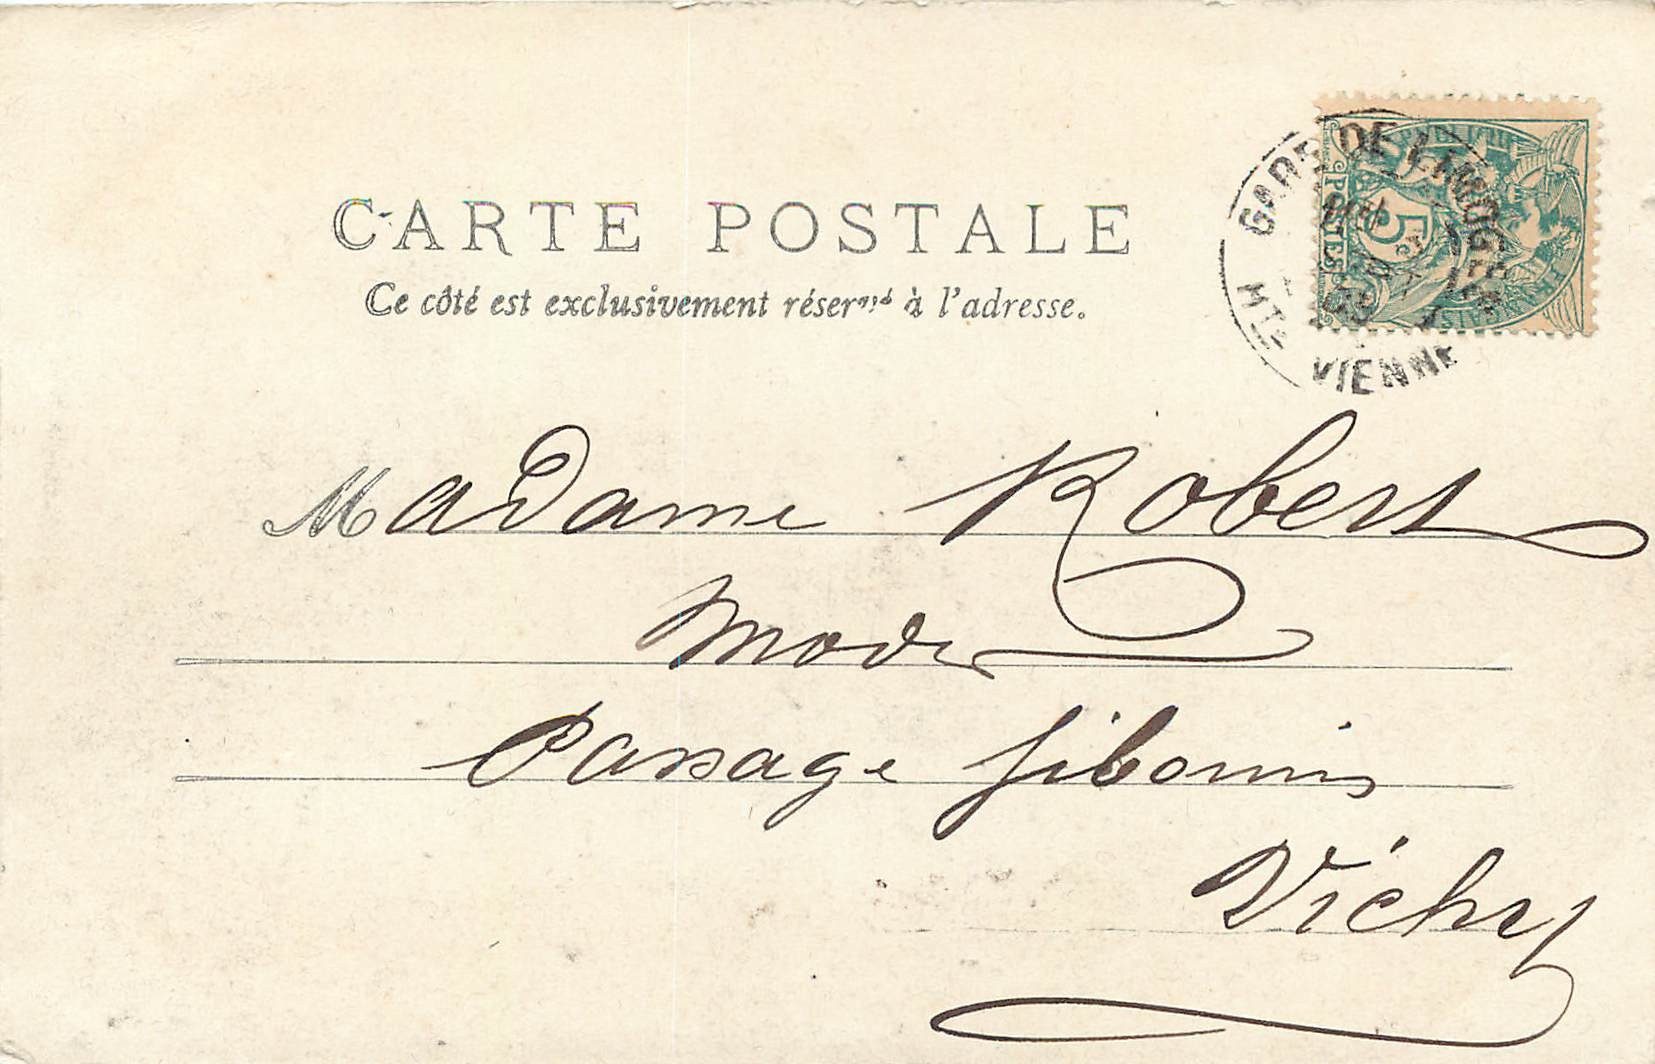 CARTE POSTALE
Ce côté est exclusivement réservé à l'adresse.
GARE DE LIMOGES
HTE VIENNE
RÉPUBLIQUE FRANÇAISE
POSTES
5c
Madame Robert
Modes
Passage Giboin
Vichy